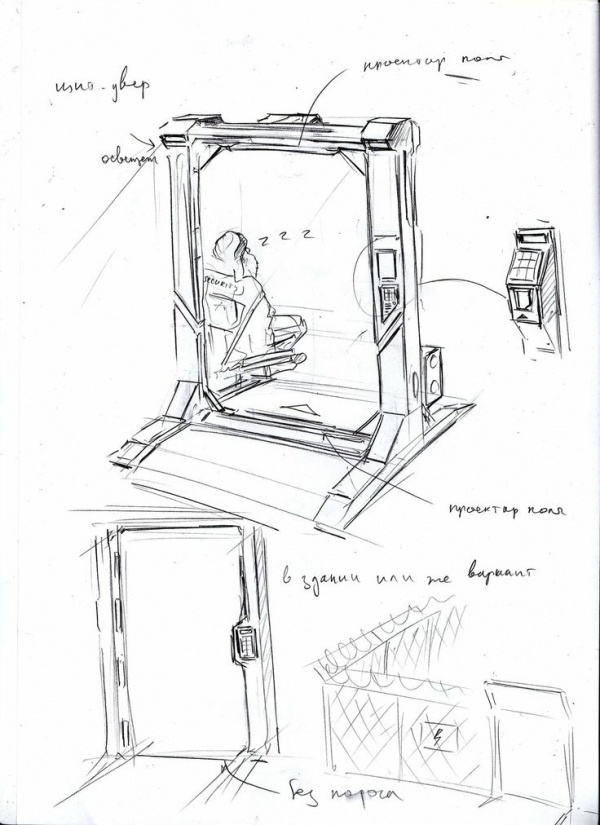 щит-двер
проектор поля
осветит
z z z
SECURITY
проектор поля
в здании или же вариант
без порога